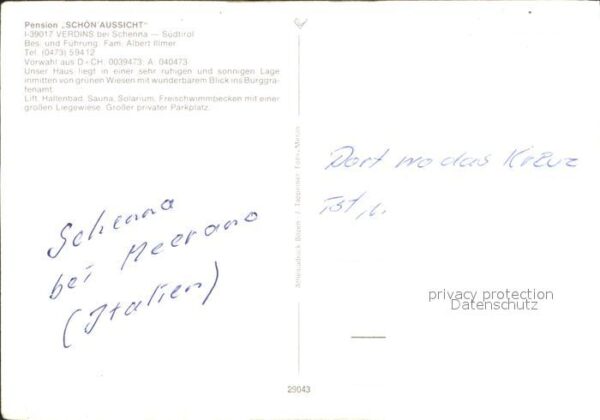 Pension „SCHÖN AUSSICHT"
I-39017 VERDINS bei Schenna — Südtirol
Bes. und Führung: Fam. Albert Illmer
Tel. (0473) 59412
Vorwahl aus D - CH: 0039473; A: 040473
Unser Haus liegt in einer sehr ruhigen und sonnigen Lage
inmitten von grünen Wiesen mit wunderbarem Blick ins Burggra-
fenamt.
Lift, Hallenbad, Sauna, Solarium, Freischwimmbecken mit einer
großen Liegewiese. Großer privater Parkplatz.
Schenna
bei Meerano
(Italien)
Dort wo das Kreuz
ist
privacy protection
Datenschutz
29043